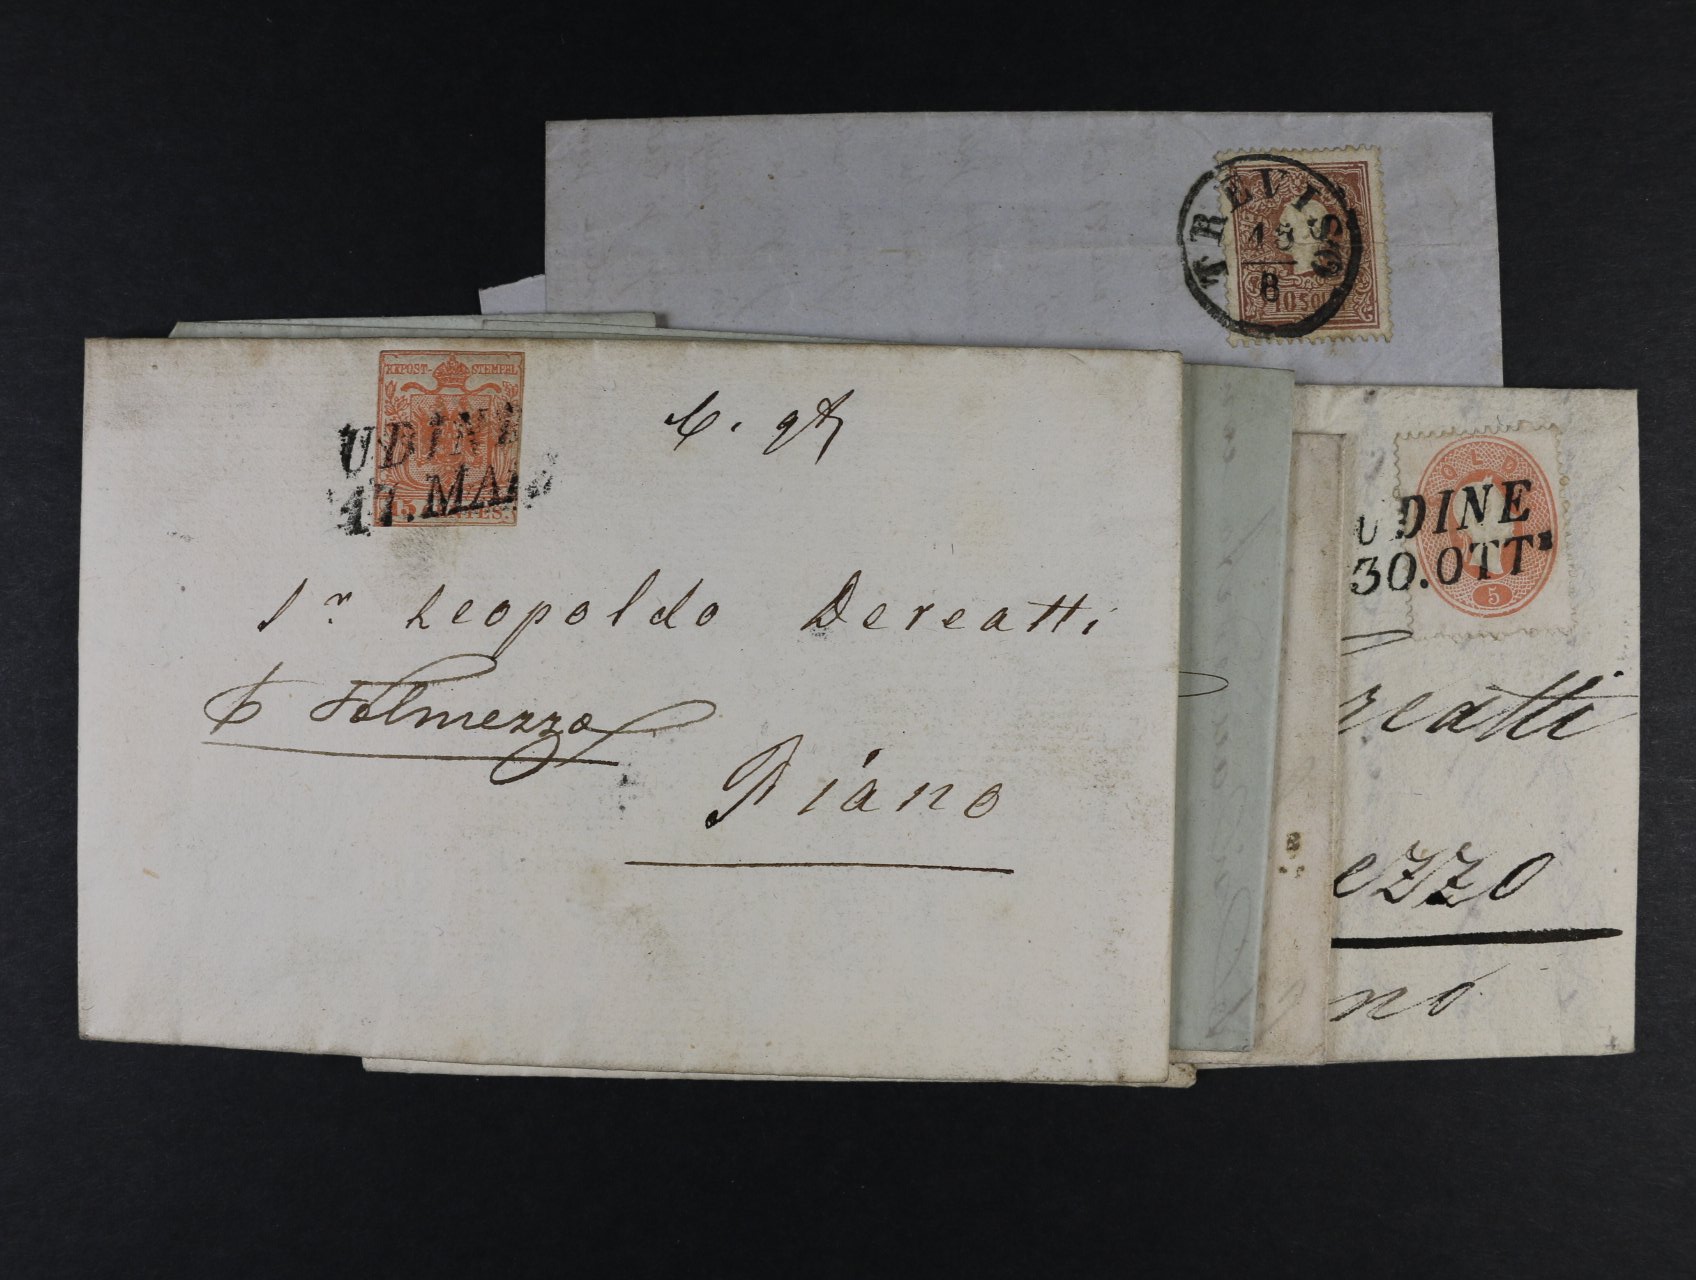 TREVISO
18
8
10 SOL
KKPOST-STEMPEL
UDINE
17.MAR
15 CENTES.
Sr. Leopoldo Dereatti
p Tolmezzo
Piano
SOLDI
UDINE
30.OTTE
5
reatti
ezzo
no